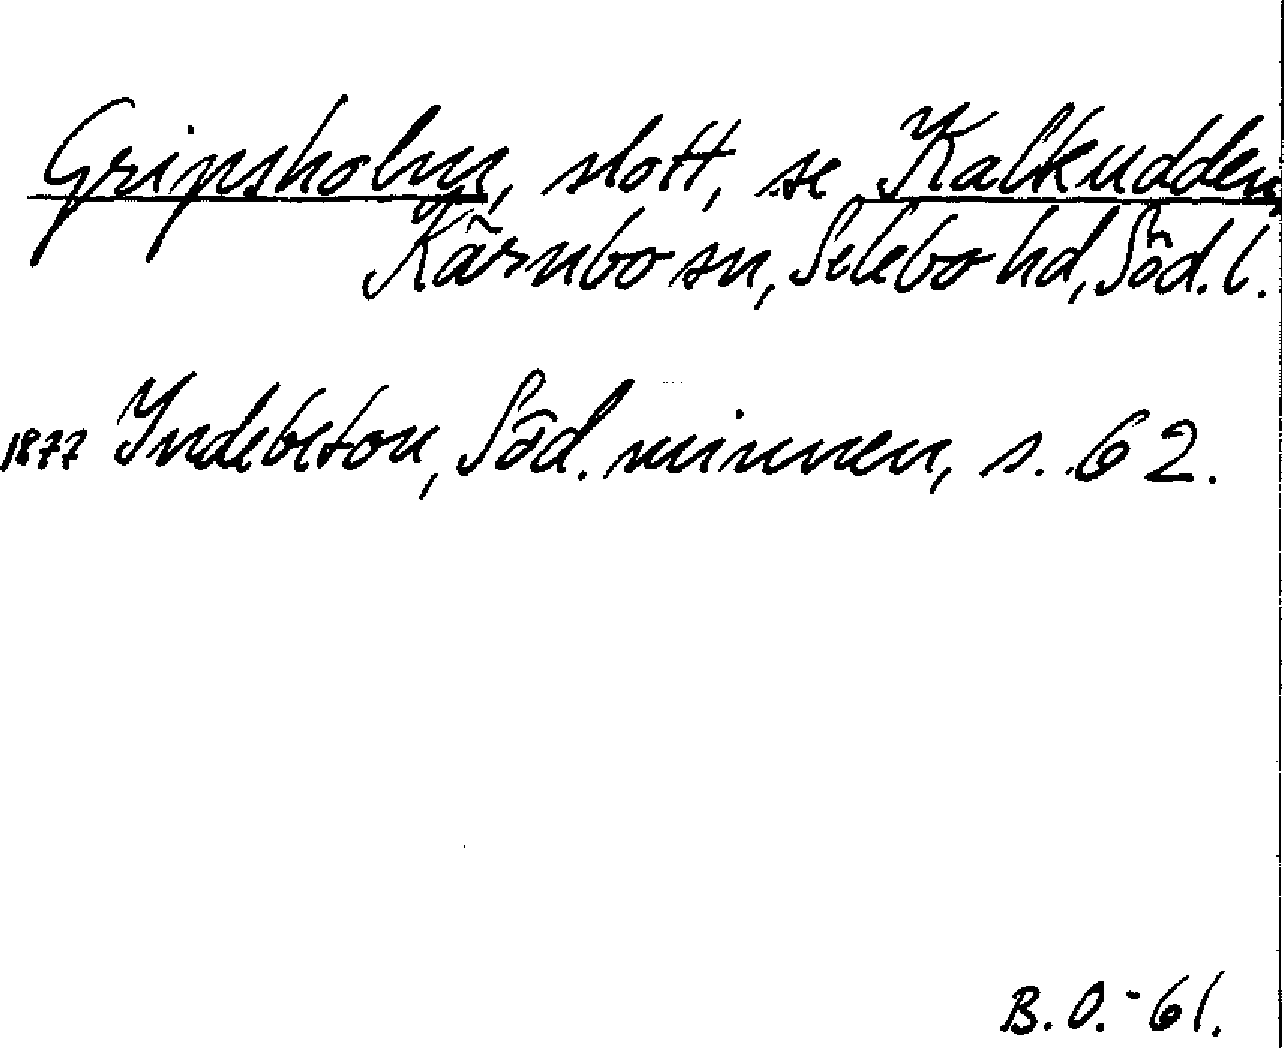 Gripsholm, slott, se Kalkudden,
Kärnbo sn, Selebo hd, Söd. l.
1877 Indebetou, Söd. minnen, s. 62.
B.O.-61.